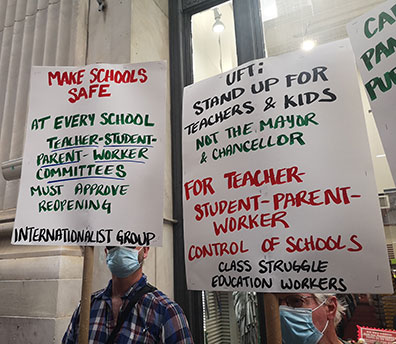 MAKE SCHOOLS
SAFE
AT EVERY SCHOOL
TEACHER-STUDENT-
PARENT-WORKER
COMMITTEES
MUST APPROVE
REOPENING
INTERNATIONALIST GROUP
UFT:
STAND UP FOR
TEACHERS & KIDS
NOT THE MAYOR
& CHANCELLOR
FOR TEACHER-
STUDENT-PARENT-
WORKER
CONTROL OF SCHOOLS
CLASS STRUGGLE
EDUCATION WORKERS